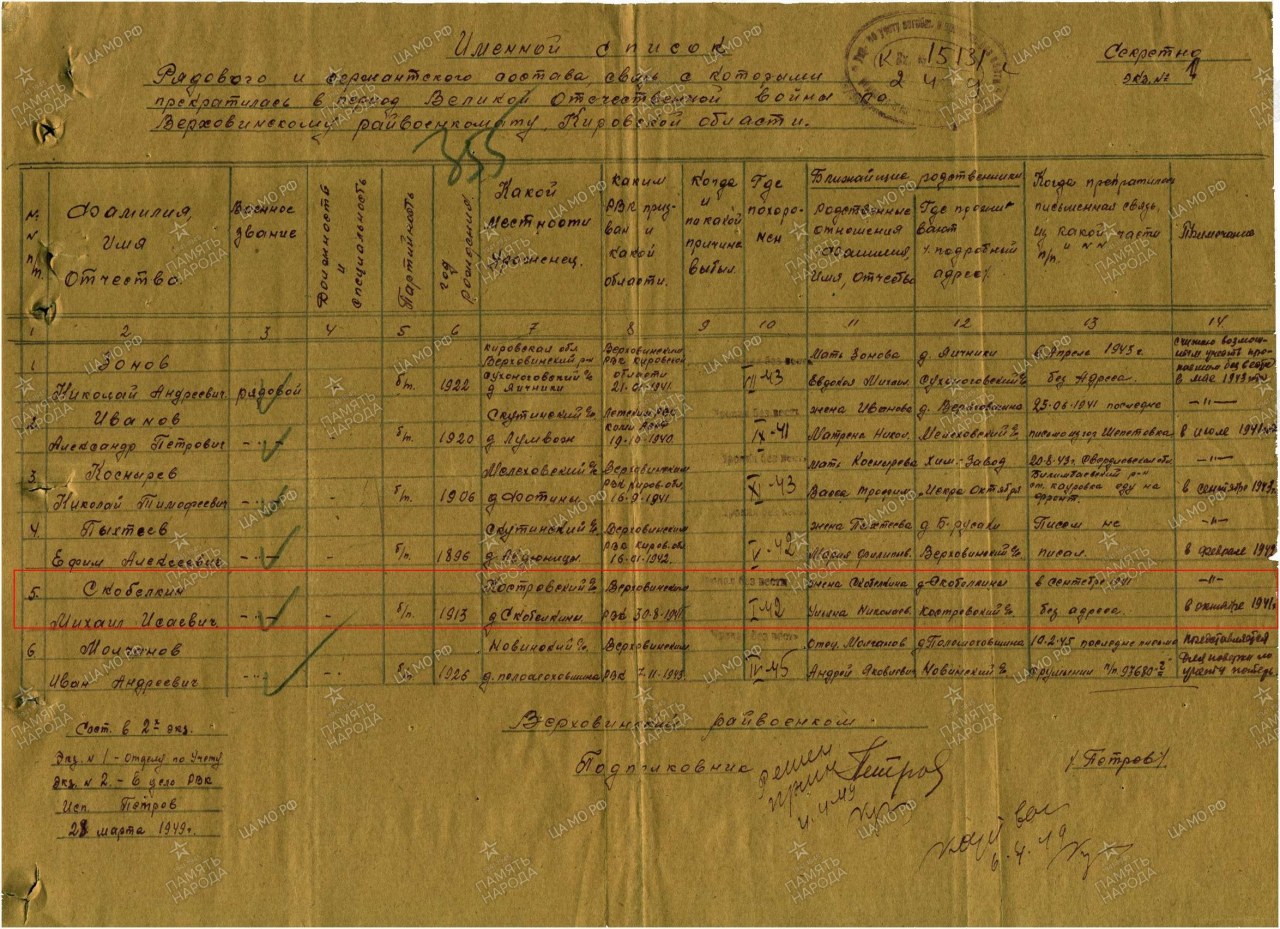 Именной список
Секретно
экз. № 1
Рядового и сержантского состава связь с которыми
прекратилась в период Великой Отечественной войны по
Верховинскому райвоенкомату, Кировской области.
Вх. 15131
2 4 9
355
№ № п/п.
Фамилия, Имя Отчество.
Военное звание
Должность и специальность
Партийность
год рождения
Какой местности уроженец.
Каким РВК призван и какой области.
Когда и по какой причине выбыл.
Где похоронен
Ближайшие родственники
Родственные отношения Фамилия, Имя, Отчество
Где проживают /подробный адрес/
Когда прекратилась письменная связь, из какой части и №№ п/п.
Примечание
1 2 3 4 5 6 7 8 9 10 11 12 13 14
1 Зонов Николай Андреевич рядовой - б/п. 1922 Кировская обл Верховинский р-н Сухоноговский с/с д Яичники Верховинским РВК Кировской области 21-01-1941 VII-43 Мать Зонова Евдокия Михаил. д. Яичники Сухоноговский с/с Апреле 1943 г. без Адреса. считаю возможным учесть пропавшего без вести в мае 1943 г
2 Иванов Александр Петрович -"- - б/п. 1920 Скутинский с/с 19-10-1940 IX-41 жена Иванова Матрена Никол. Мелеховский с/с 25-06-1941 последнее письмо из гор Шепетовка -"- в июле 1941 г
3. Косырев Николай Тимофеевич -"- - б/п. 1906 Мелеховский с/с д Фотины Верховинским РВК Киров. обл. 16-9-1941 XI-43 мать Косырева Хим-Завод Искра Октября 20-8-43 г. Свердловская обл. еду на фронт. -"- в сентябре 1943 г
4. Пыхтеев Ефим Алексеевич -"- - б/п. 1896 Скутинский с/с Верховинским РВК Киров. обл 16-01-1942. V-42 жена Пыхтеева Мария Филипив. Верховинский с/с Писем не писал. -"- в феврале 1942
5. Скобелкин Михаил Исаевич. -"- - б/п. 1913 Костровский с/с д. Скобелкины Верховинским РВК 30-8-1941 I-42 жена Скобелкина Ульяна Николаев. д-Скобелкины Костровский с/с в сентябре 1941 без адреса. -"- в октябре 1941 г
6. Молчанов Иван Андреевич -"- - б/п. 1926 Новинский с/с Верховинским РВК 7-11-1943 IV-45 Отец Молчанов Андрей Яковлевич Новинский с/с 10-2-45 последнее письмо Румынии п/п. 97680
Верховинский райвоенком
Подполковник Петров /Петров/
Решен
4.4.49
6.4.49
Сост. в 2х экз.
Экз. № 1 - Отделу по Учету
Экз. № 2. - В дело РВК
Исп. Петров
28 марта 1949 г.
ПАМЯТЬ НАРОДА
ЦАМО.РФ